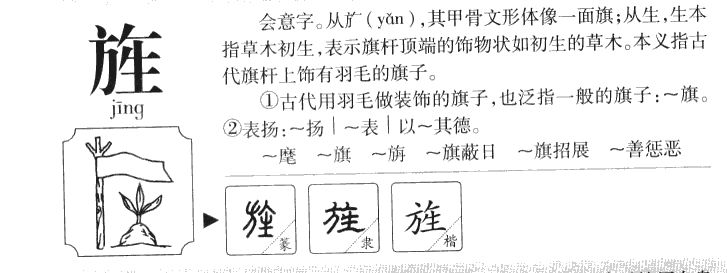 旌
jīng
会意字。从㫃(yǎn),其甲骨文形体像一面旗;从生,生本
指草木初生,表示旗杆顶端的饰物状如初生的草木。本义指古
代旗杆上饰有羽毛的旗子。
①古代用羽毛做装饰的旗子,也泛指一般的旗子:~旗。
②表扬:~扬|~表|以~其德。
~麾 ~旗 ~旃 ~旗蔽日 ~旗招展 ~善惩恶
旌 篆 旌 隶 旌 楷